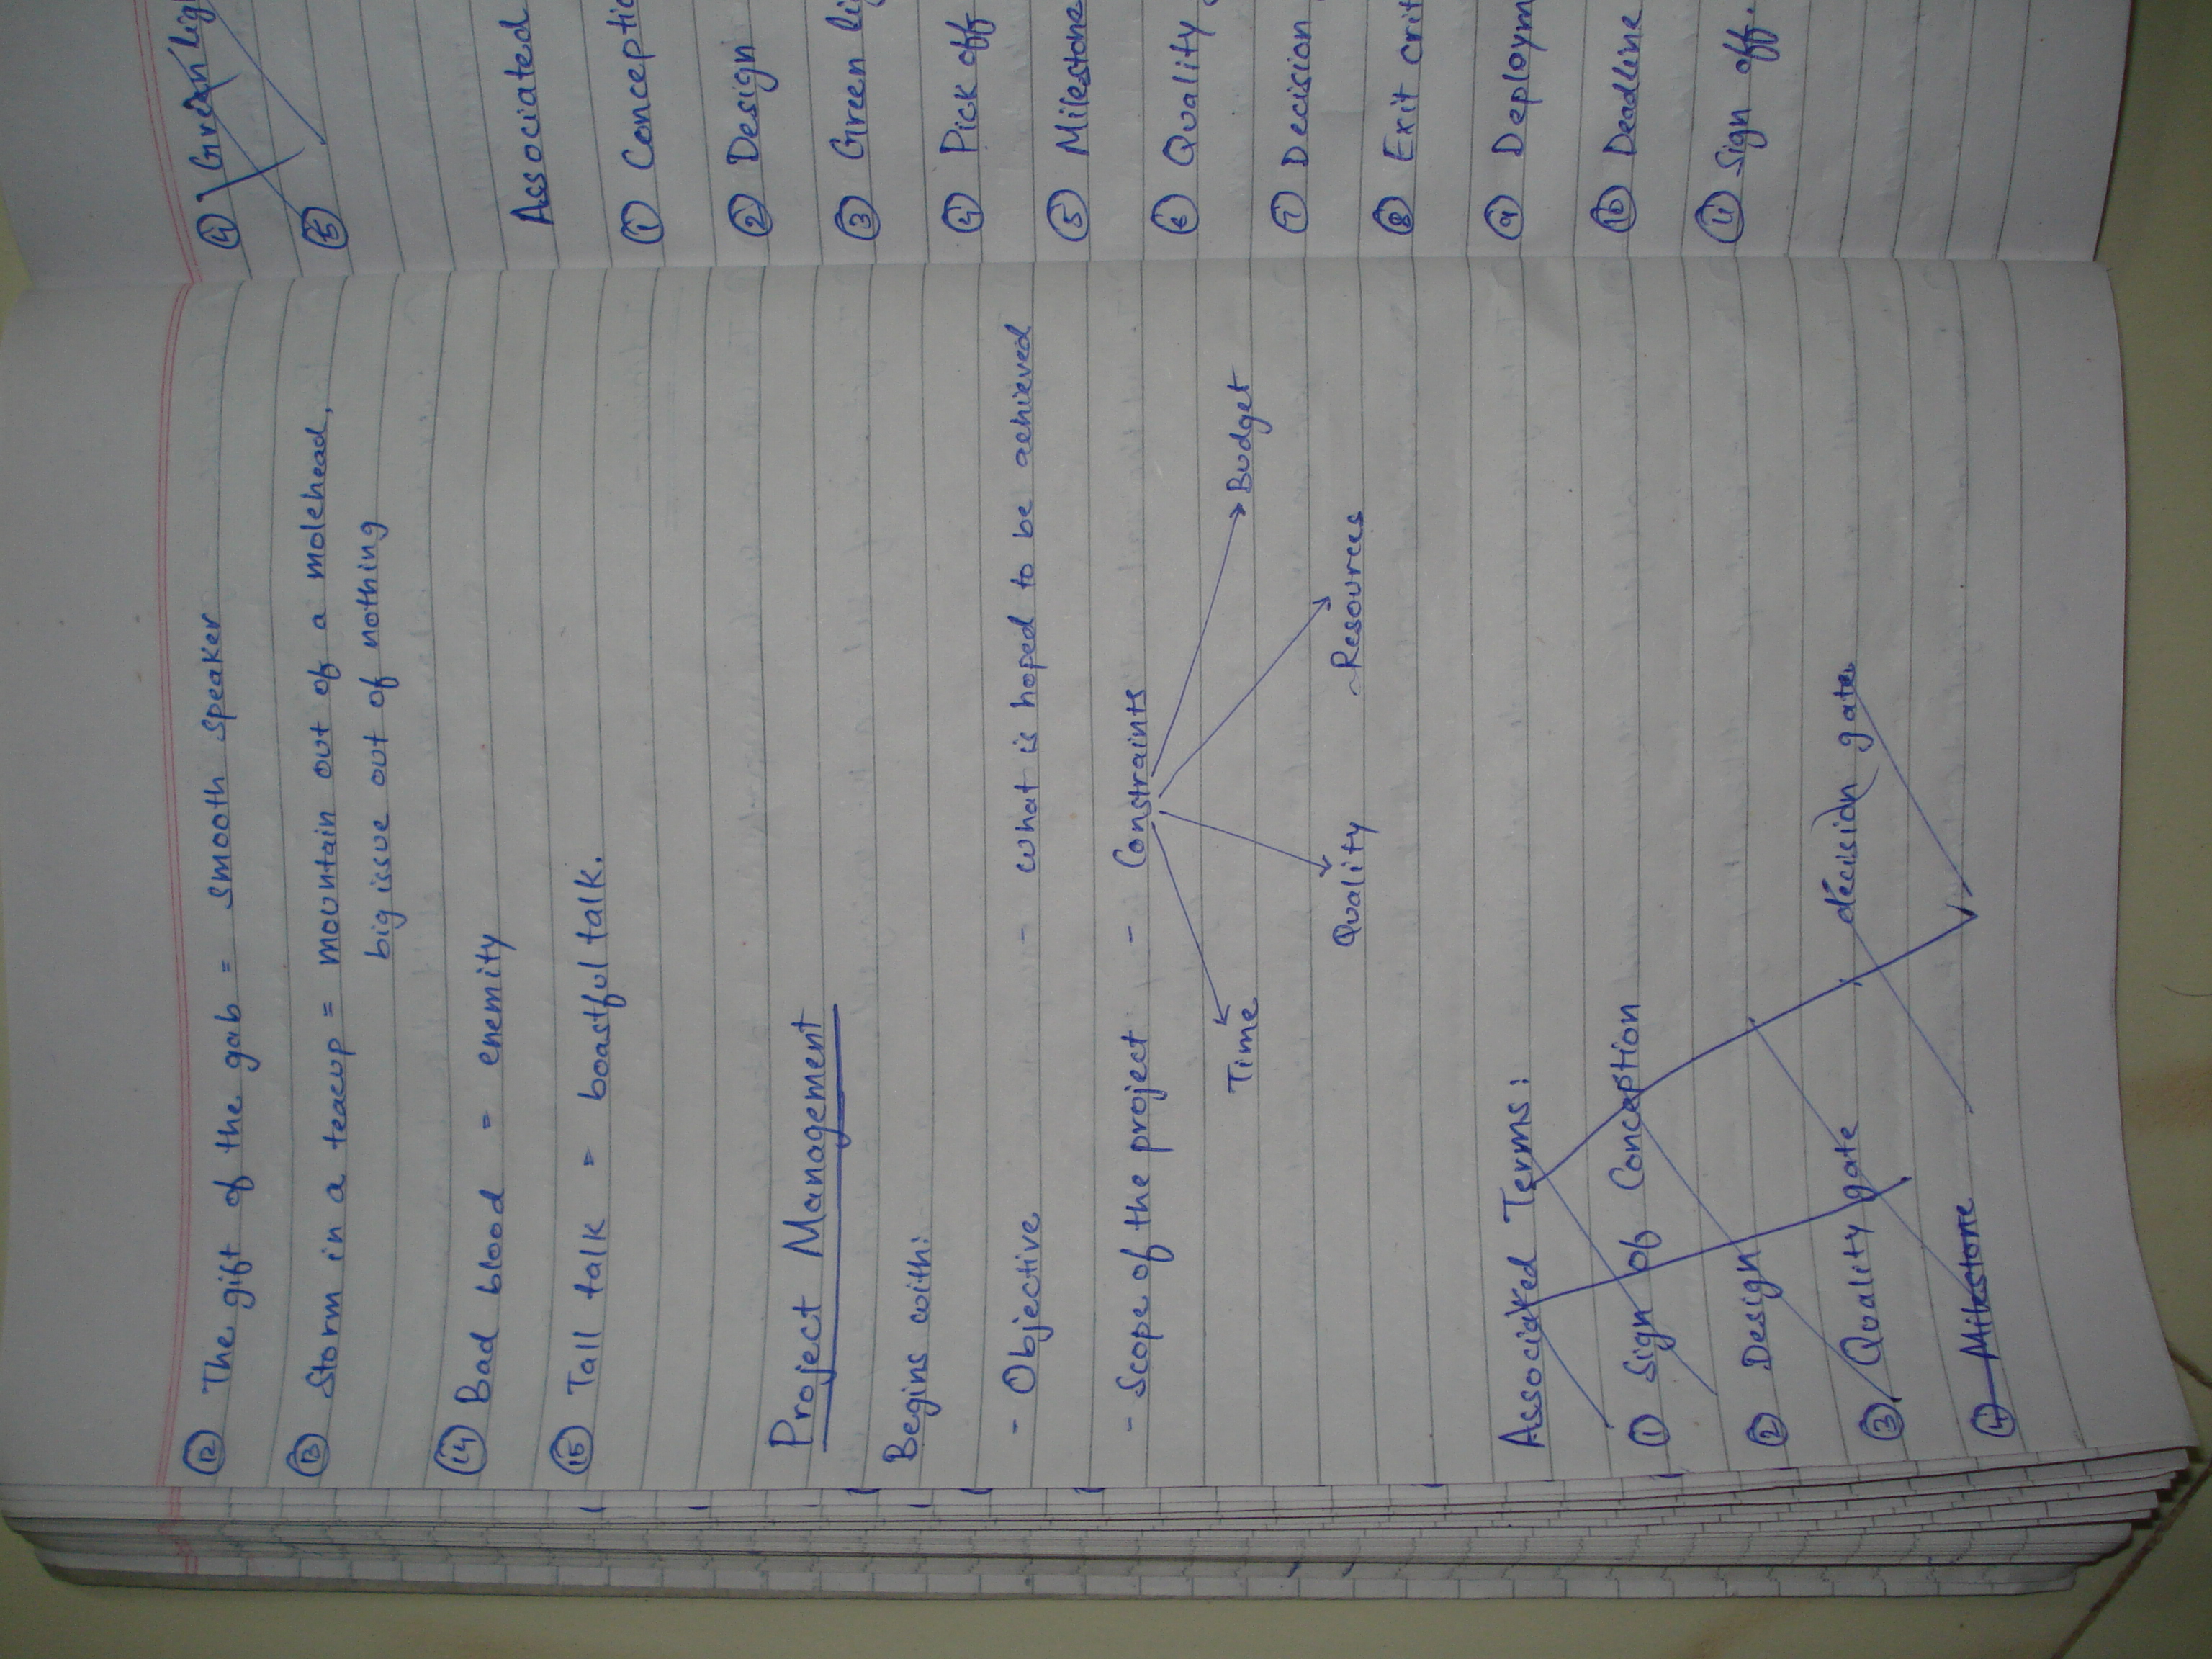 ⑫ The gift of the gab = smooth speaker
⑬ Storm in a teacup = mountain out of a molehead,
big issue out of nothing
⑭ Bad blood = enemity
⑮ Tall talk = boastful talk.
Project Management
Begins with:
- Objective - what is hoped to be achieved
- Scope of the project - Constraints
Time Budget
Quality Resources
Associated Terms:
① Sign of Conception
② Design
③ Quality gate decision gate
④ Milestone
④ Green lig
⑤
Associated
① Conceptio
② Design
③ Green li
④ Pick off
⑤ Milestone
⑥ Quality
⑦ Decision
⑧ Exit crit
⑨ Deploym
⑩ Deadline
⑪ Sign off.